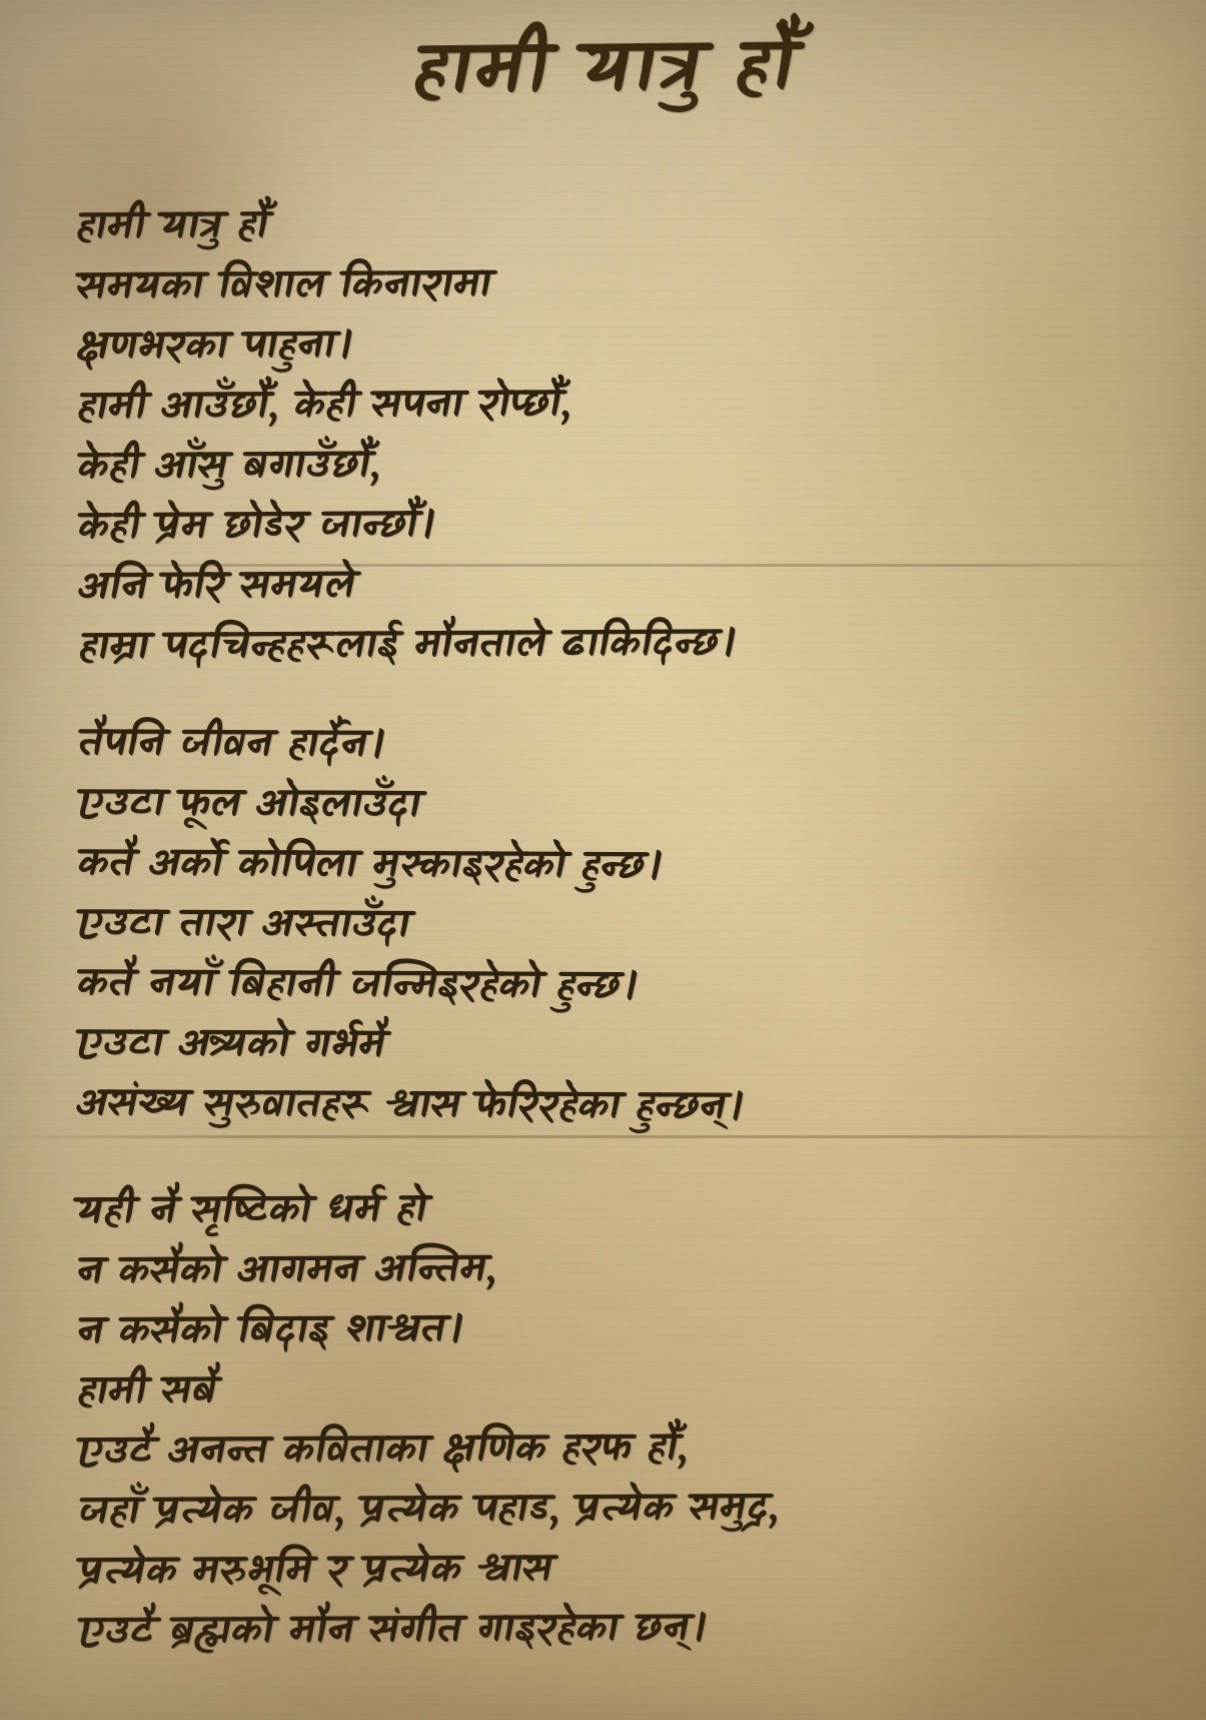 हामी यात्रु हौँ
हामी यात्रु हौँ
समयका विशाल किनारामा
क्षणभरका पाहुना।
हामी आउँछौँ, केही सपना रोप्छौँ,
केही आँसु बगाउँछौँ,
केही प्रेम छोडेर जान्छौँ।
अनि फेरि समयले
हाम्रा पदचिन्हहरूलाई मौनताले ढाकिदिन्छ।
तैपनि जीवन हार्दैन।
एउटा फूल ओइलाउँदा
कतै अर्को कोपिला मुस्काइरहेको हुन्छ।
एउटा तारा अस्ताउँदा
कतै नयाँ बिहानी जन्मिइरहेको हुन्छ।
एउटा अन्त्यको गर्भमै
असंख्य सुरुवातहरू श्वास फेरिरहेका हुन्छन्।
यही नै सृष्टिको धर्म हो
न कसैको आगमन अन्तिम,
न कसैको बिदाइ शाश्वत।
हामी सबै
एउटै अनन्त कविताका क्षणिक हरफ हौँ,
जहाँ प्रत्येक जीव, प्रत्येक पहाड, प्रत्येक समुद्र,
प्रत्येक मरुभूमि र प्रत्येक श्वास
एउटै ब्रह्मको मौन संगीत गाइरहेका छन्।